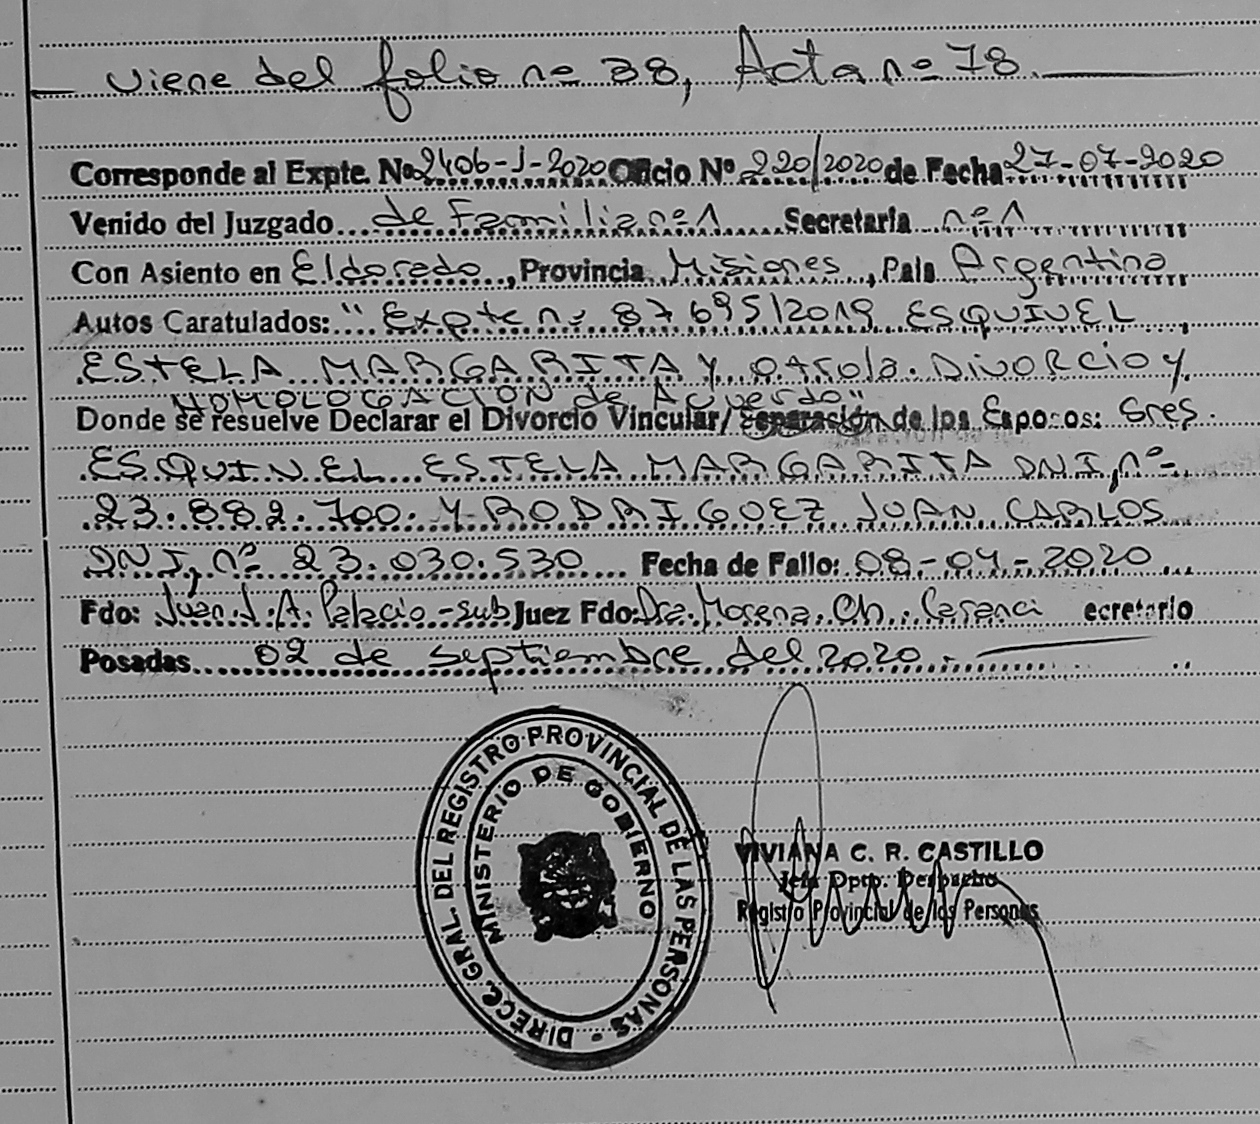 Viene del folio nº 38, Acta nº 78.
Corresponde al Expte. Nº 2406-J-2020 Oficio Nº 220/2020 de Fecha 27-07-2020
Venido del Juzgado de Familia nº 1 Secretaria nº 1
Con Asiento en Eldorado, Provincia Misiones, Pais Argentina
Autos Caratulados: "Expte nº 87695/2019 ESQUIVEL
ESTELA MARGARITA Y otro/a. DIVORCIO y
HOMOLOGACION de Acuerdo"
Donde se resuelve Declarar el Divorcio Vincular/ Separación de los Esposos: Sres.
ESQUIVEL ESTELA MARGARITA DNI, nº
23.882.700. Y RODRIGUEZ JUAN CARLOS
DNI, nº 23.030.530 Fecha de Fallo: 08-04-2020
Fdo: Juan J. A. Palacio - sub Juez Fdo: Dra. Morena. Ch. ecretario
Posadas 02 de septiembre del 2020.-
DIRECC. GRAL. DEL REGISTRO PROVINCIAL DE LAS PERSONAS -
MINISTERIO DE GOBIERNO
VIVIANA C. R. CASTILLO
Jefa Dpto. Despacho
Registro Provincial de las Personas